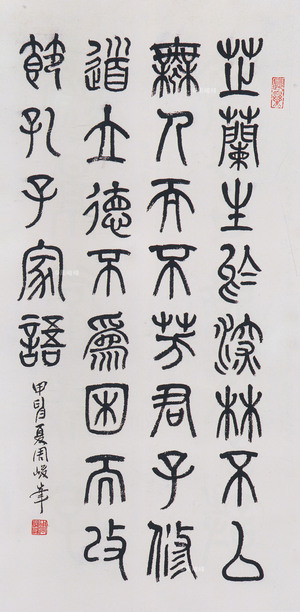 芷蘭生於深林不以
無人而不芳君子修
道立德不為困而改
節孔子家語
甲午夏周峻峯